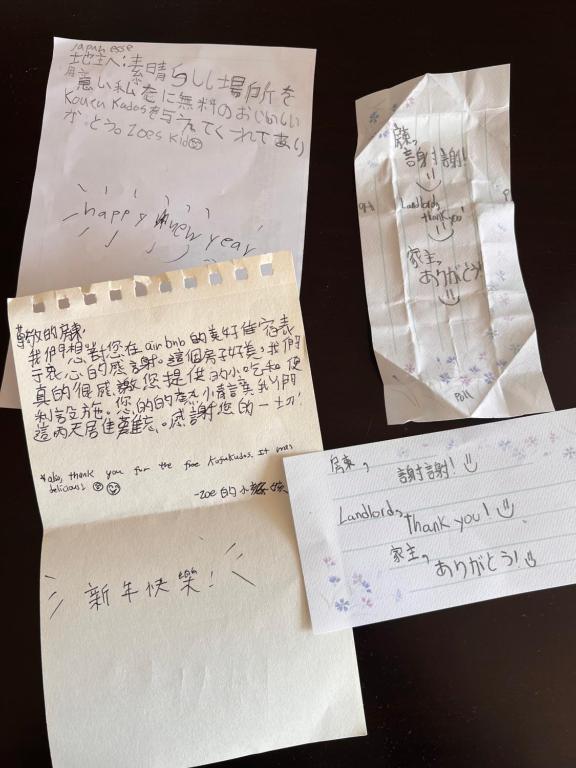 Japanesse
地主へ:素晴らしい場所を
私に無料のおいしい
Kouku Kadosを与えてくれてあり
がとう。Zoes Kid
happy new year
房東,
謝謝!
Landlord,
thank you!
家主,
ありがとう!
Pull
尊敬的房東,
我們想對您在airbnb的美好住宿表
于衷心的感謝。這個房子好美,我們
真的很感激您提供的小吃和便
利設施。您的的熱情讓我們
這兩天居住難忘。感謝您的一切!
*also, thank you for the free Kufukudos. It was
delicious
-Zoe的小孩
新年快樂!
房東,
謝謝!
Landlord,
thank you!
家主,
ありがとう!